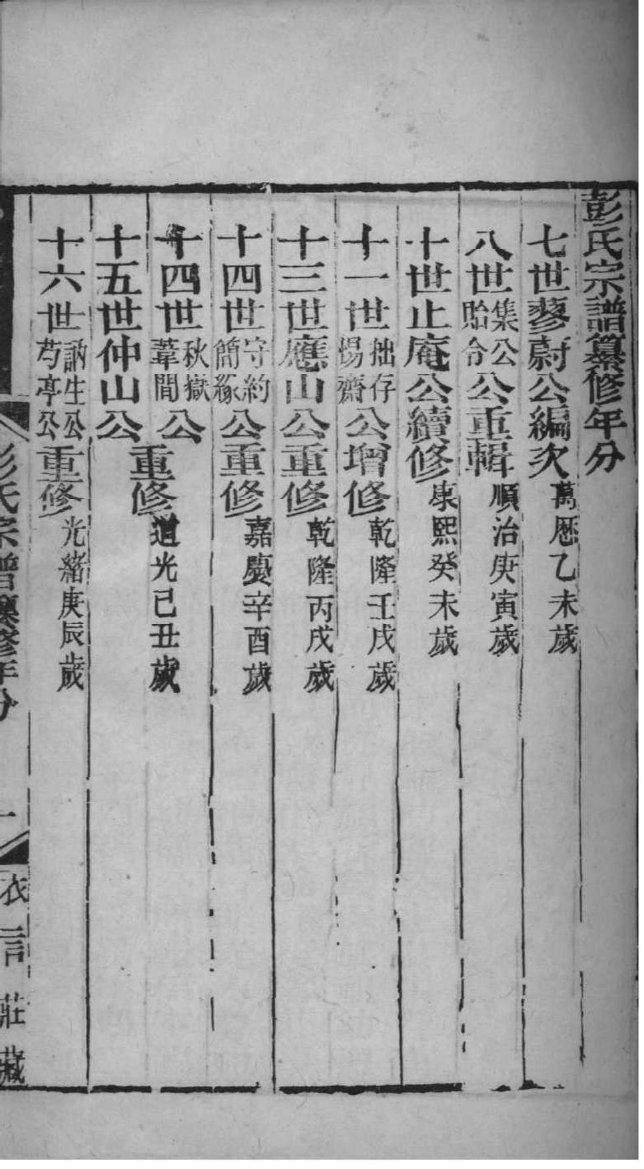 彭氏宗譜纂修年分
七世蓼蔚公編次 萬厯乙未歲
八世集公貽令公重輯 順治庚寅歲
十世止庵公續修 康熙癸未歲
十一世拙存惕齋公增修 乾隆壬戌歲
十三世應山公重修 乾隆丙戌歲
十四世守約簡緣公重修 嘉慶辛酉歲
十四世秋嶽葦間公
十五世仲山公重修 道光己丑歲
十六世訥生公芍亭公重修 光緒庚辰歲
彭氏宗譜纂修年分 一 衣言莊藏